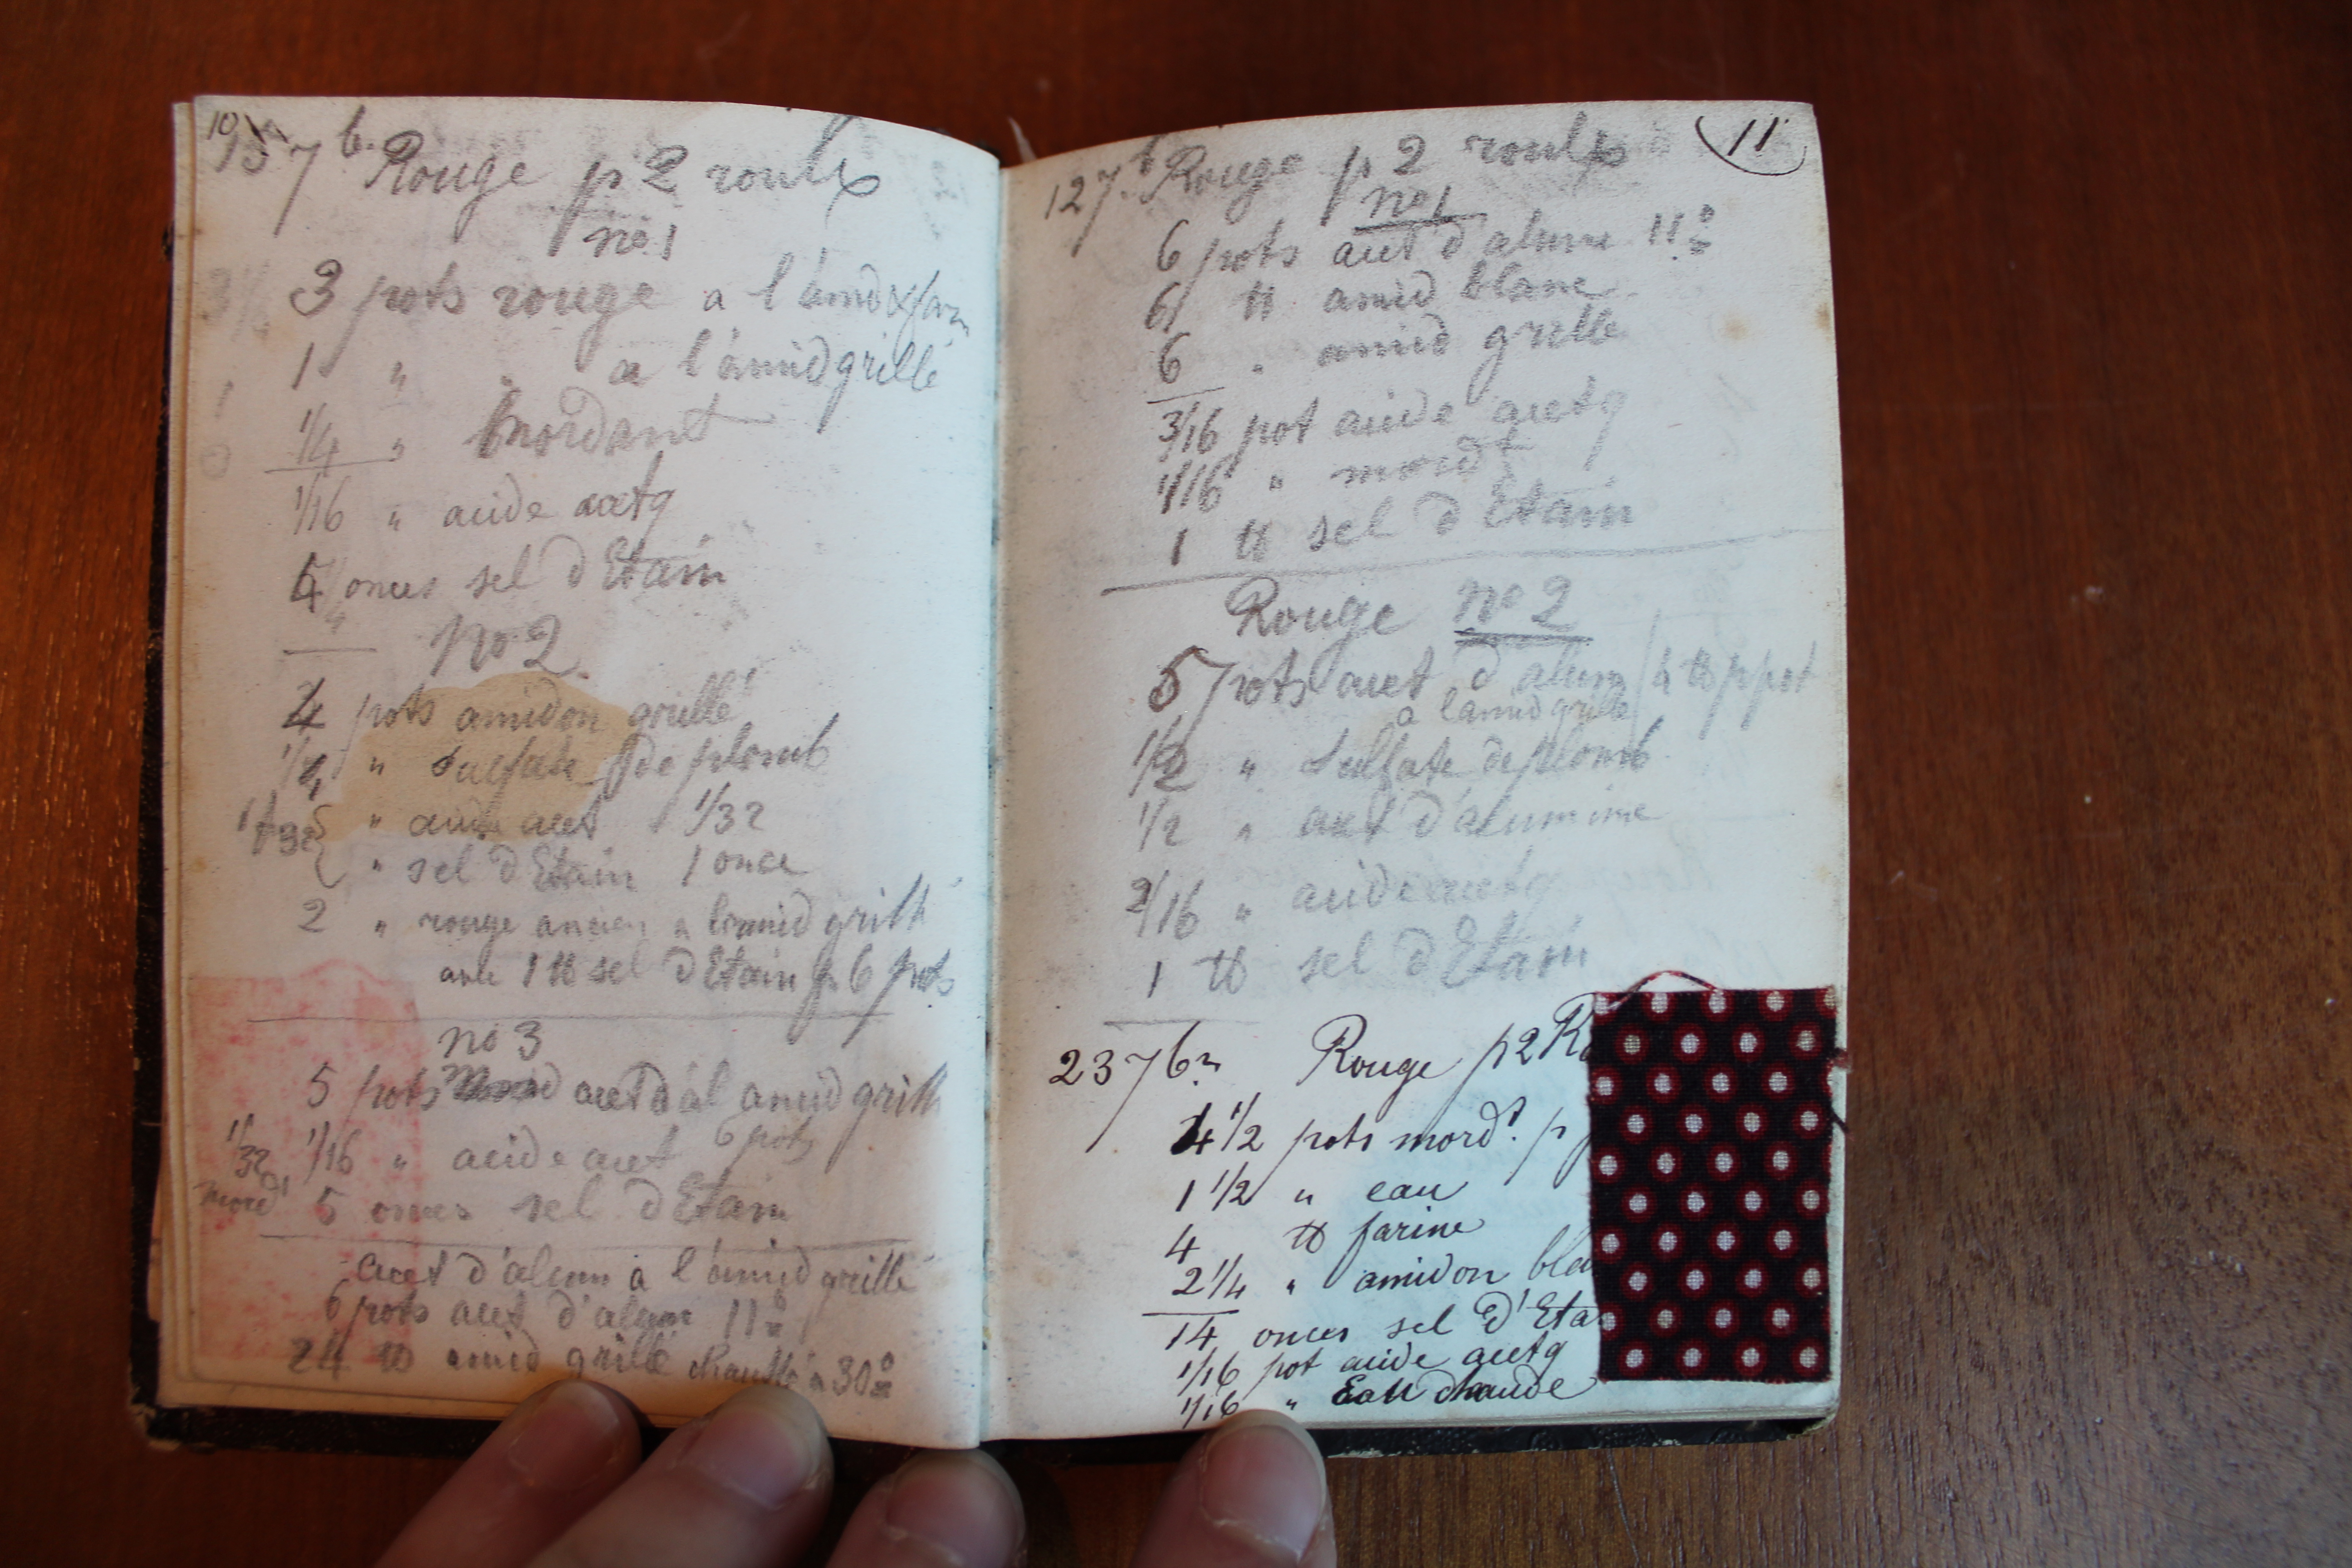 10
157 b. Rouge p 2 roulx
no 1
3 pots rouge a l'amid & farin
1 " " a l'amid grillé
1/4 " mordant
1/16 " acide acetq
4 onces sel d'Etain
no 2
4 pots amidon grillé
" sulfate de plomb
" acide acet 1/32
" sel d'Etain 1 once
2 " rouge ancien a l'amid grillé
avec 1 ℔ sel d'Etain p 6 pots
no 3
5 pots acet d'al amid grillé
1/16 " acide acet 6 pots
1/32
mordt
5 onces sel d'Etain
acet d'alum a l'amid grillé
6 pots acet d'alum 11°
24 ℔ amid grillé chauffé a 30°
11
127. b Rouge p 2 roulx
no 1
6 pots acet d'alume 11°
6 ℔ amid blanc
6 " amid grillé
3/16 pot acide acetq
1/16 " mordt
1 ℔ sel d'Etain
Rouge no 2
5 pots acet d'alum 4 ℔ p pot
a l'amid grillé
1/2 " sulfate de plomb
1/2 " acet d'alumine
2/16 " acide acetq
1 ℔ sel d'Etain
237 b Rouge p 2 Ro
4 1/2 pots mordt. p
1 1/2 " eau
4 ℔ farine
2 1/4 " amidon bla
14 onces sel d'Eta
1/16 pot acide acetq
1/16 " Eau chaude